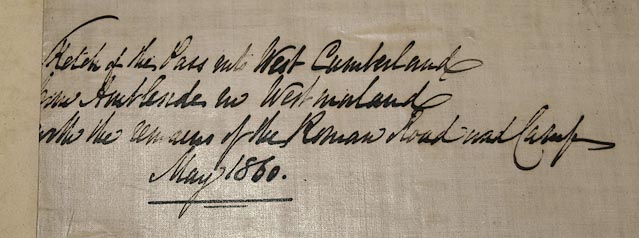 Sketch of the Pass into West Cumberland
from Ambleside in Westmoland
with the remains of the Roman Road and Camp
May 1860.